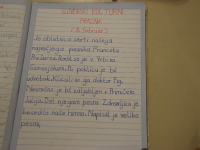 SLOVENSKI KULTURNI
PRAZNIK
(8. februar)
Je obletnica smrti našega
največjega pesnika Franceta
Prešerna. Rodil se je v Vrbi na
Gorenjskem. Po poklicu je bil
odvetnik. Klicali so ga doktor Fig.
Nesrečno je bil zaljubljen v Primičevo
Julijo. Del njegove pesmi Zdravljica je
besedilo naše himne. Napisal je veliko
pesmi.